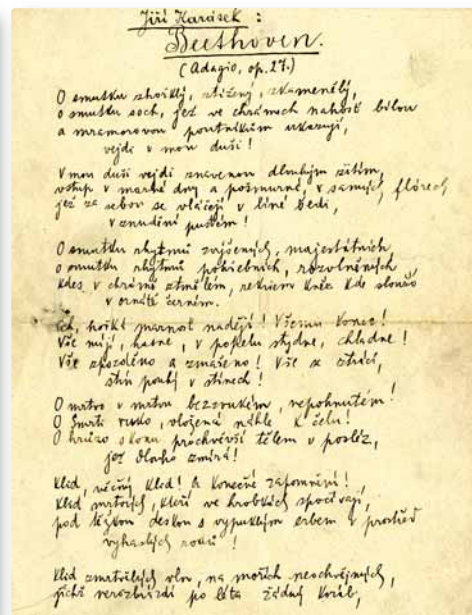 Jiří Karásek :
Beethoven.
(Adagio, op. 27.)
O smutku zhořklý, ztížený, zkamenělý,
o smutku soch, jež ve chrámech nahost bílou
a mramorovou poutníkům ukazují,
vejdi v mou duši!
V mou duši vejdi znavenou dlouhým žitím,
vstup v marné dny a pošmurné, v samých flórech
jež za sebou se vlážejí v líné šedi,
v znudění pustém!
O smutku rhytmů zvjčených, majestátních,
o smutku rhytmů pohřebních, rozvolněných,
kdes v chrámě ztmělém, rekviem kněz kde slouží
v ornátě černém.
Ach, hořká marnost nadějí! Všemu konec!
Vše míjí, hasne, v popelu stydne, chladne!
Vše zpozděno a zmařeno! Vše se ztrácí,
stín pouhý v stínech!
O mrtvo v mrtvu bezzvukém, nepohnutém!
O Smrti ruko, vložená náhle k čelu!
O hrůzo skonu prochvěvší tělem v posléz,
jež dlouho zmírá!
Klid, věčný klid! A konečné zapomnění!
Klid mrtvých, kteří ve hrobkách spočívají,
pod těžkou deskou s vypuklým erbem v prostřed
vyhaslých rodů!
Klid zmrtvělých vln, na mořích neochvějných,
jichž nerozbrázdí po léta žádný koráb,